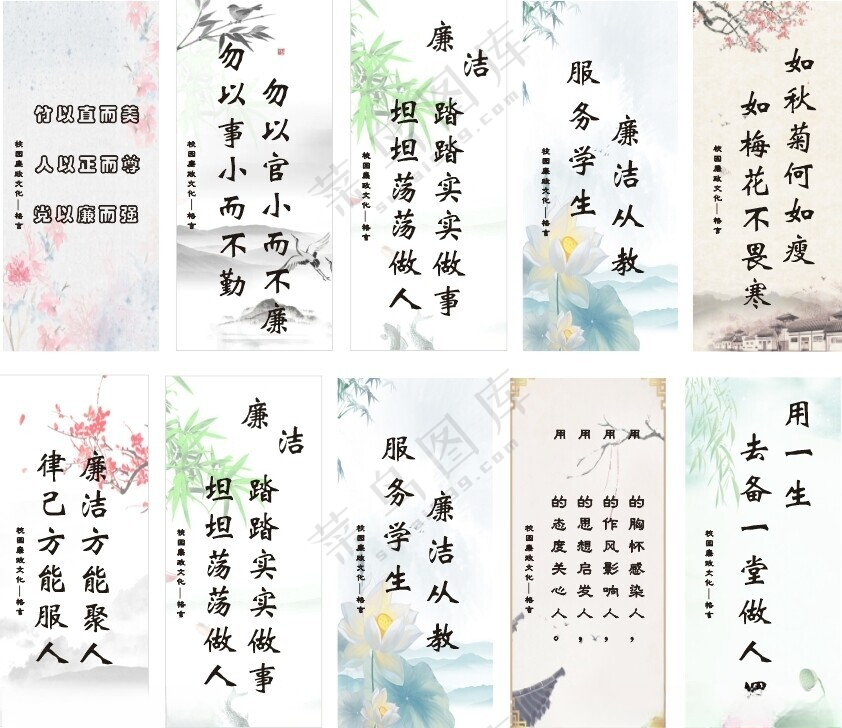 竹以直而美
人以正而尊
党以廉而强
校园廉政文化——格言
勿以官小而不廉
勿以事小而不勤
校园廉政文化——格言
廉洁
踏踏实实做事
坦坦荡荡做人
校园廉政文化——格言
廉洁从教
服务学生
校园廉政文化——格言
如秋菊何如瘦
如梅花不畏寒
校园廉政文化——格言
廉洁方能聚人
律己方能服人
校园廉政文化——格言
廉洁
踏踏实实做事
坦坦荡荡做人
校园廉政文化——格言
廉洁从教
服务学生
校园廉政文化——格言
用 的胸怀感染人，
用 的作风影响人，
用 的思想启发人，
用 的态度关心人。
校园廉政文化——格言
用一生
去备一堂做人
校园廉政文化——格言
菜鸟图库